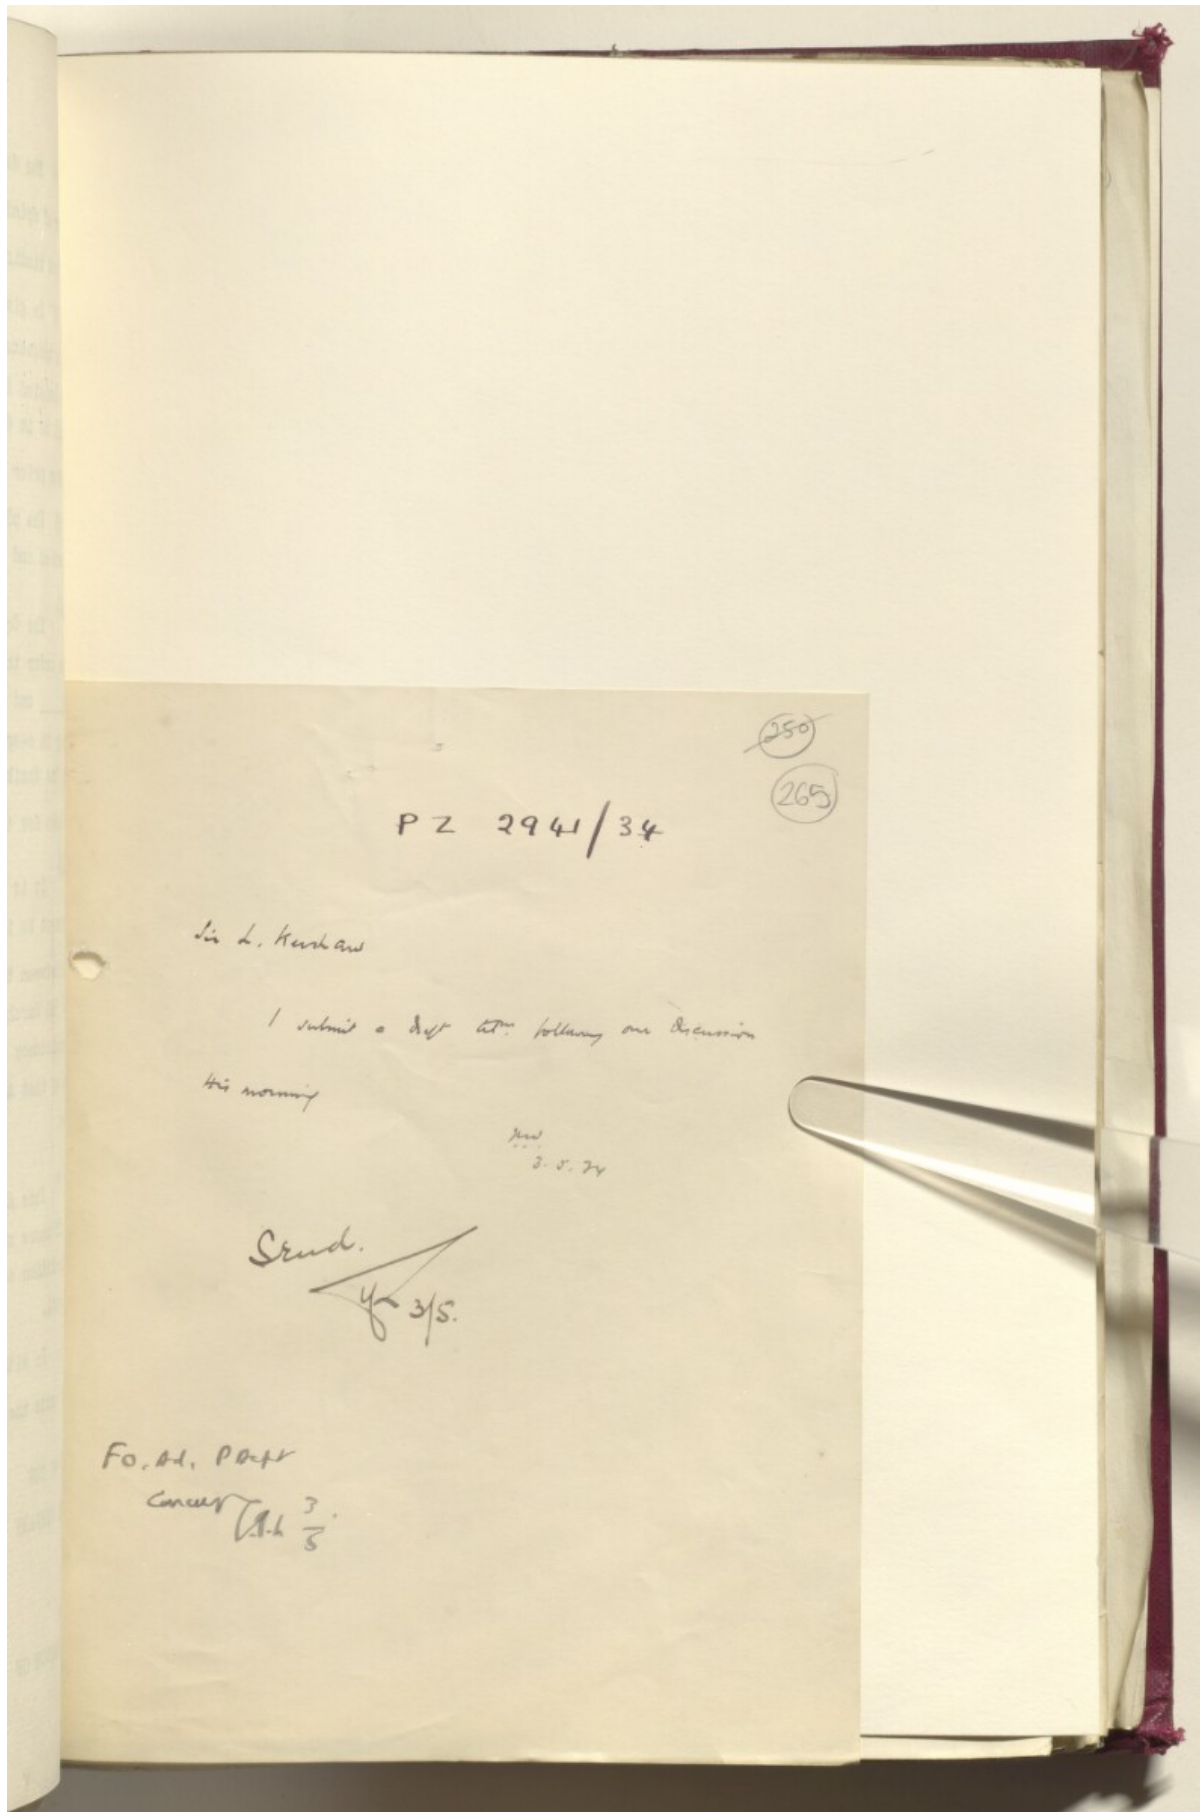 250
265
PZ 2941/34
Sir L. Kershaw
I submit a draft following our discussion
this morning
3.5.34
Send.
3/5.
Fo. Ad. P Dept
Concur
3/5